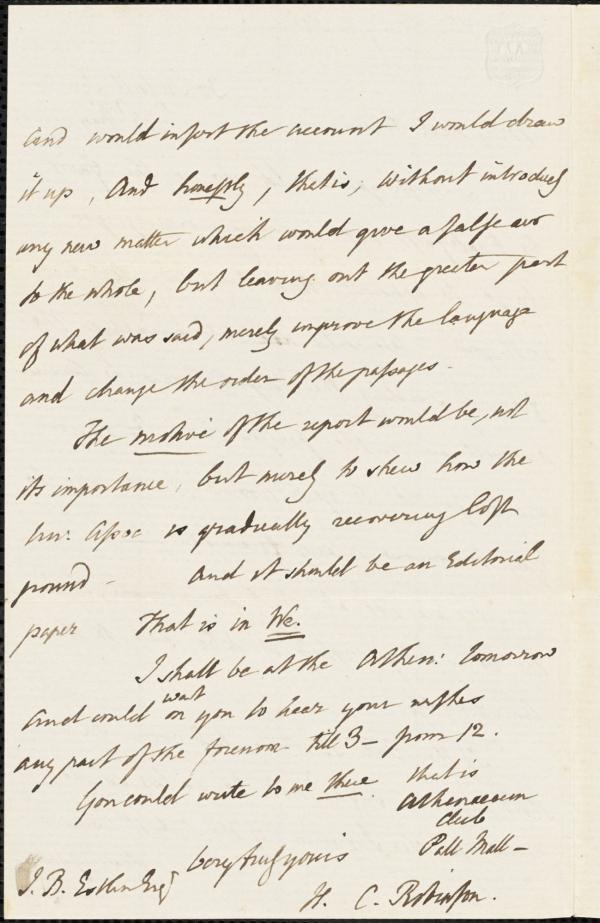 and would insert the account I would draw
it up, And honestly, that is, without introducg
any new matter which would give a false air
to the whole, but leaving out the greater part
of what was said, merely improve the language
and change the order of the passages.
The motive of the report would be, not
its importance, but merely to shew how the
Assoc is gradually recovering lost
ground – And it should be an Editorial
paper That is in We.
I shall be at the Athen: tomorrow
and could wait on you to hear your wishes
any part of the forenoon till 3 – from 12.
You could write to me there that is
Athenaeum
Club
Pall Mall –
Very truly yours
J. B. Estlin Esq
H. C. Robinson.